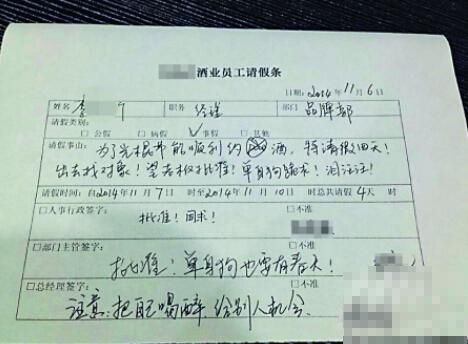 酒业员工请假条
日期：2014年11月6日
姓名 李 职务 经理 部门 品牌部
请假类别：
□公假 □病假 ☑事假 □其他
请假事由：为了光棍节能顺利约酒，特请假四天！
出去找对象！望各权批准！单身狗跪求！泪汪汪！
请假时间：自2014年11月7日 时至2014年11月10日 时总共请假4天 时
□人事行政签字： □不准
批准！同求！
□部门主管签字： □不准
批准！单身狗也要有春天！
□总经理签字： □不准
注意：把自己喝醉 给别人机会